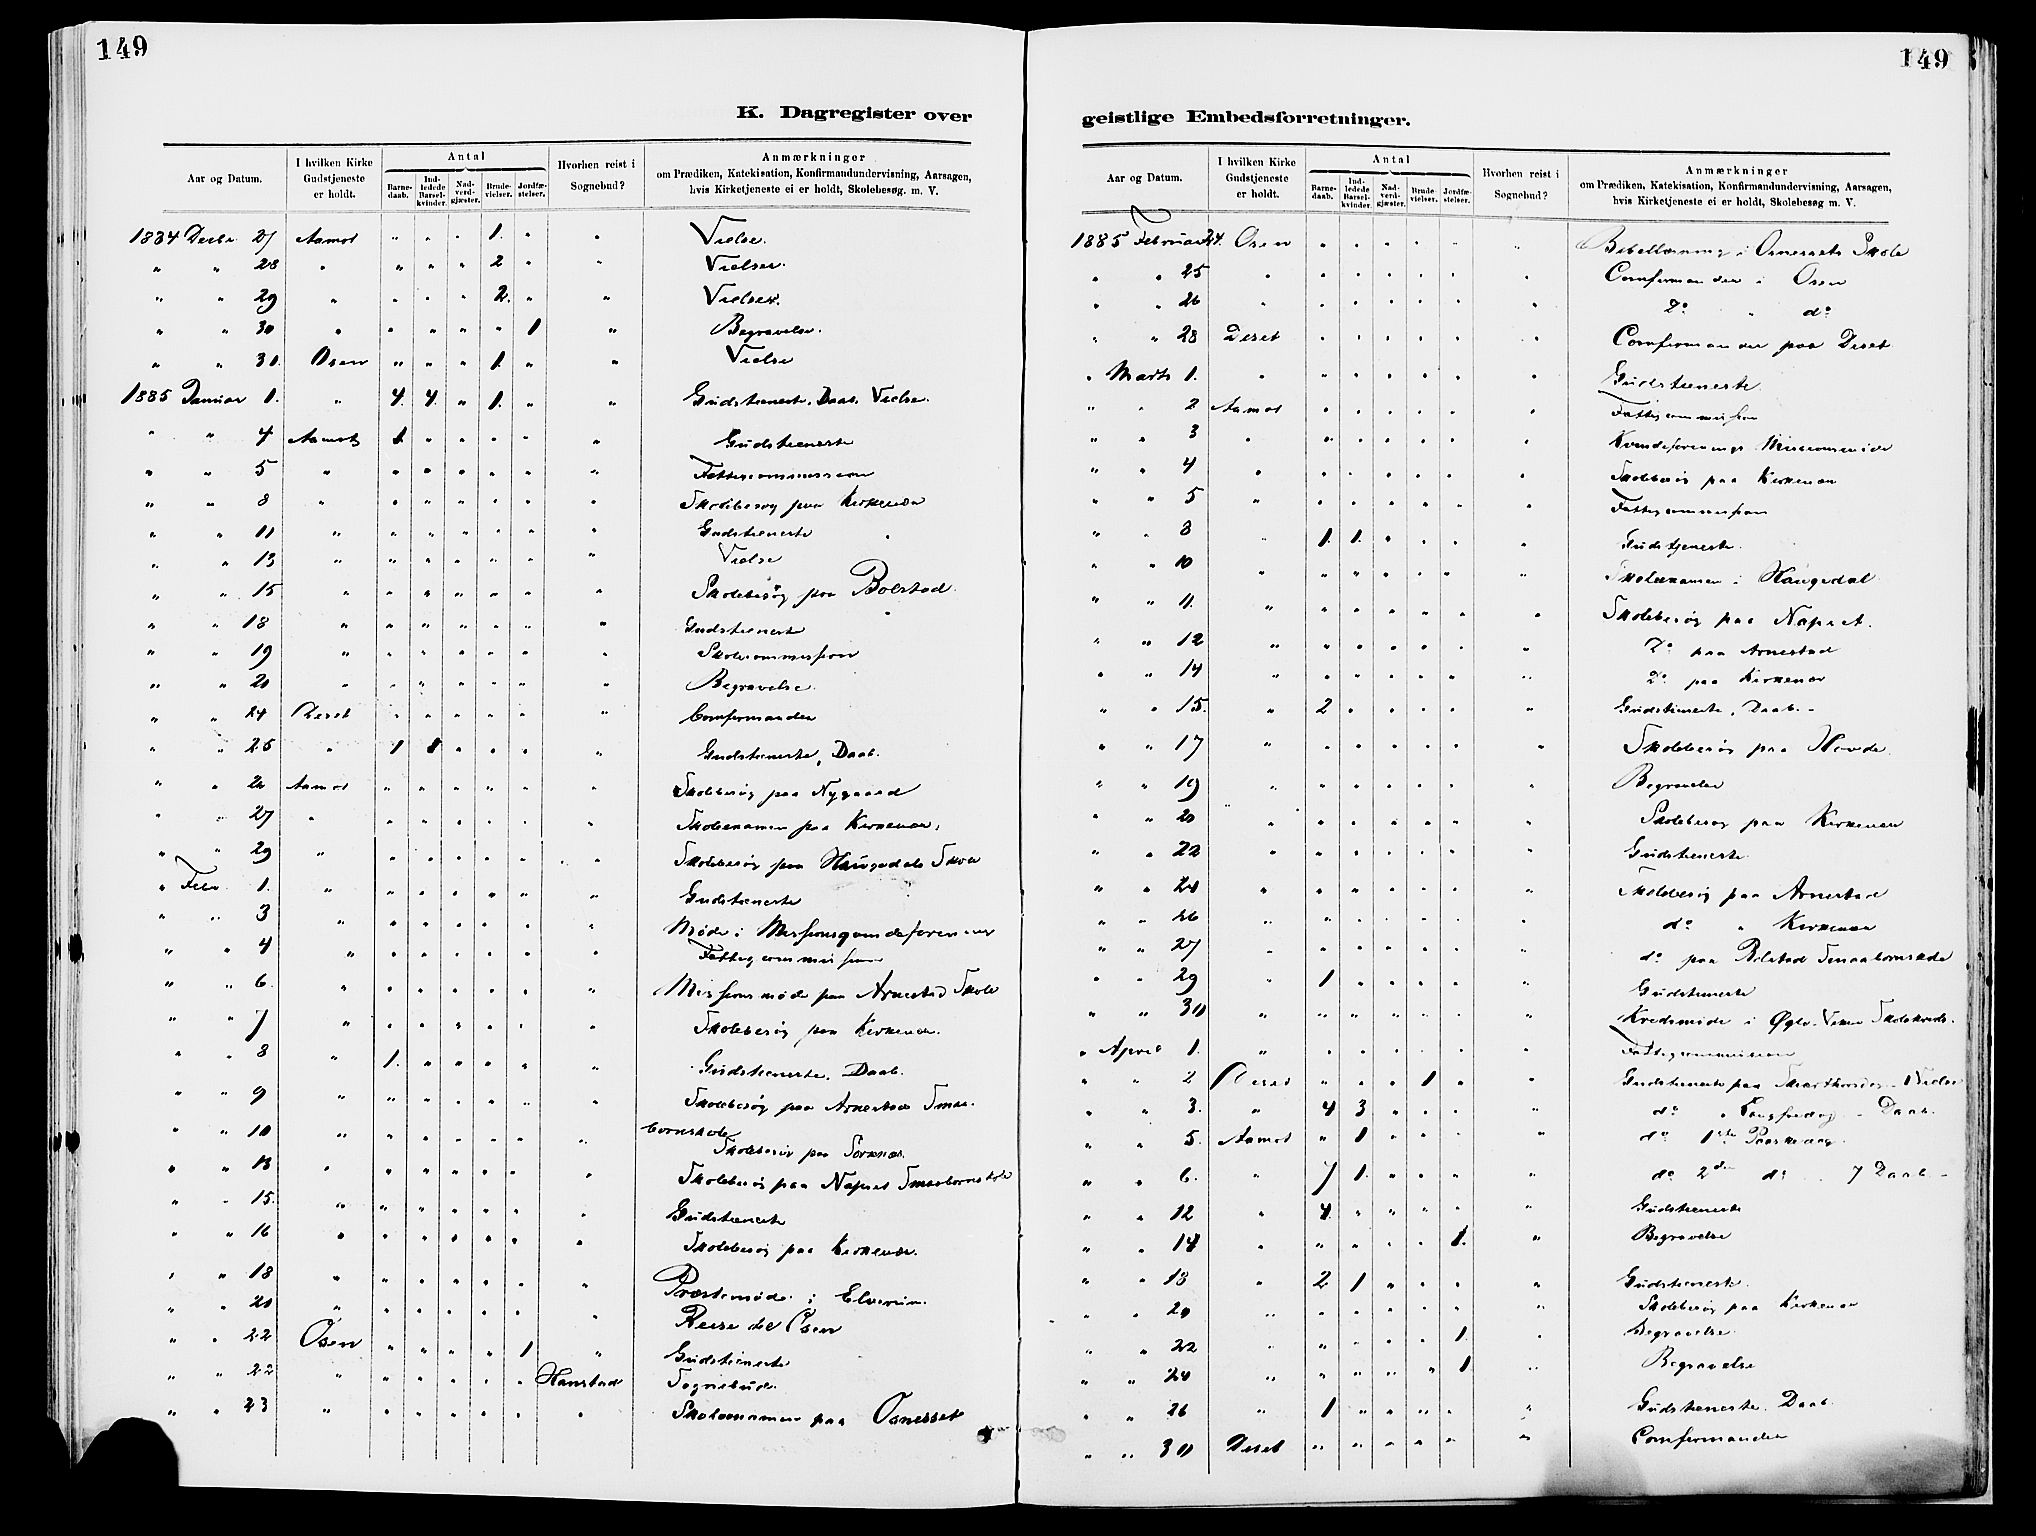 149
149
K. Dagregister over
geistlige Embedsforretninger.
Aar og Datum.
I hvilken Kirke Gudstjeneste er holdt.
Antal
Barnedaab.
Indledede Barselkvinder.
Nadverdgjæster.
Brudevielser.
Jordfæstelser.
Hvorhen reist i Sognebud?
Anmærkninger
om Prædiken, Katekisation, Konfirmandundervisning, Aarsagen,
hvis Kirketjeneste ei er holdt, Skolebesøg. m. V.
1884 Decbr. 27 Aamot " " " 1. " " Vielse.
" " 28 " " " " 2 " " Vielser.
" " 29 " " " " 2. " " Vielser.
" " 30 " " " " " 1 " Begravelse.
" " 30. Osen " " " 1. " " Vielse
1885 Januar 1. " 4. 4. " 1. " " Gudstieneste. Daab. Vielse.
" " 4 Aamot 1. " " " " " Gudstieneste
" " 5 " " " " " " " Fattigcommission
" " 8 " " " " " " " Skolebesøg paa Kirkenær
" " 11 " " " " " " " Gudstieneste
" " 13 " " " " " " " Vielse
" " 15 " " " " " " " Skolebesøg paa Bolstad.
" " 18 " " " " " " " Gudstieneste
" " 19 " " " " " " " Skolecommission
" " 20 " " " " " " " Begravelse.
" " 24 Deset " " " " " " Comfirmander
" " 25 " 1 1 " " " " Gudstieneste, Daab.
" " 26 Aamot " " " " " " Skolebesøg paa Nygaard
" " 27 " " " " " " " Skolexamen paa Kirkenær.
" " 29 " " " " " " " Skolebesøg paa Haugedals Skole
" Febr. 1. " " " " " " " Gudstieneste
" " 3 " " " " " " " Møde i Missionsqvindeforening
" " 4 " " " " " " " Fattigcommission
" " 6. " " " " " " " Missionsmøde paa Arnestad Skole
" " 7 " " " " " " " Skolebesøg paa Kirkenær.
" " 8 " 1. " " " " " Gudstieneste. Daab.
" " 9 " " " " " " " Skolebesøg paa Arnestad Smaabornskole
" " 10 " " " " " " " Skolebesøg paa Sorknes.
" " 13 " " " " " " " Skolebesøg paa Napset Smaabornskole
" " 15. " " " " " " " Gudstieneste
" " 16 " " " " " " " Skolebesøg paa Kirkenær.
" " 18 " " " " " " " Præstemøde i Elverum.
" " 20 " " " " " " " Reise til Osen
" " 22 Osen " " " " 1 " Gudstieneste
" " 22 " " " " " " Hanstad Sognebud.
" " 23 " " " " " " " Skolexamen paa Osnesset
Aar og Datum.
I hvilken Kirke Gudstjeneste er holdt.
Antal
Barnedaab.
Indledede Barselkvinder.
Nadverdgjæster.
Brudevielser.
Jordfæstelser.
Hvorhen reist i Sognebud?
Anmærkninger
om Prædiken, Katekisation, Konfirmandundervisning, Aarsagen,
hvis Kirketjeneste ei er holdt, Skolebesøg m. V.
1885 Februar 24. Osen " " " " " " Bibellæsning i Osnessets Skole
" " 25 " " " " " " " Comfirmander i Osen
" " 26 " " " " " " " Do " do
" " 28 Deset " " " " " " Comfirmander paa Deset
" Marts 1. " " " " " " " Gudstieneste
" " 2 Aamot " " " " " " Fattigcommission
" " 3 " " " " " " " Kvindeforenings Missionsmøde
" " 4 " " " " " " " Skolebesøg paa Kirkenær
" " 5 " " " " " " " Fattigcommission
" " 8 " 1. 1. " " " " Gudstjeneste.
" " 10 " " " " " " " Skolexamen i Haugedal
" " 11. " " " " " " " Skolebesøg paa Napset.
" " 12 " " " " " " " Do paa Arnestad
" " 14 " " " " " " " Do paa Kirkenær
" " 15. " 2 " " " " " Gudstieneste, Daab. -
" " 17 " " " " " " " Skolebesøg paa Hovde.
" " 19 " " " " " " " Begravelse
" " 20 " " " " " " " Skolebesøg paa Kirkenær
" " 22 " " " " " " " Gudstieneste.
" " 24 " " " " " " " Skolebesøg paa Arnestad
" " 26 " " " " " " " do " Kirkenær
" " 27 " " " " " " " do paa Bolstad Smaabornskole
" " 29 " 1 " " " " " Gudstieneste
" " 30 " " " " " " " Kredsmøde i Skolekreds.
" April 1. " " " " " " " Fattigcommission
" " 2 Deset " " " 1 " " Gudstieneste paa Skjærthorsdag - Vielse
" " 3. " 4 3 " " " " do " Langfredag - Daab.
" " 5. Aamot " 1 " " " " do 1ste Paaskedag.
" " 6. " 7 1. " " " " do 2den do . 7 Daab -
" " 12 " 4. " " " " " Gudstieneste
" " 14 " " " " " 1. " Begravelse
" " 18 " 2 1 " " " " Gudstieneste.
" " 20 " " " " " " " Skolebesøg paa Kirkenær
" " 22 " " " " " 1. " Begravelse.
" " 24 " " " " " 1. " Begravelse
" " 26 " 1 " " " " " Gudstieneste. Daab.
" " 30 Deset " " " " " " Comfirmander